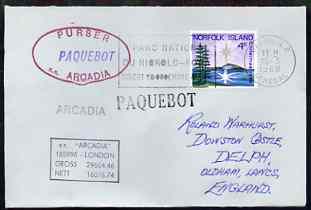 PURSER
PAQUEBOT
s.s. ARCADIA
PARC NATION
DU NIOKOLO-
NORFOLK ISLAND
4c
1968
ARCADIA
PAQUEBOT
s.s. "ARCADIA"
LONDON
GROSS 29664.46
NETT 16076.74
ROLAND WARHURST,
DOWNTON CASTLE,
DELPH,
OLDHAM, LANCS,
ENGLAND.